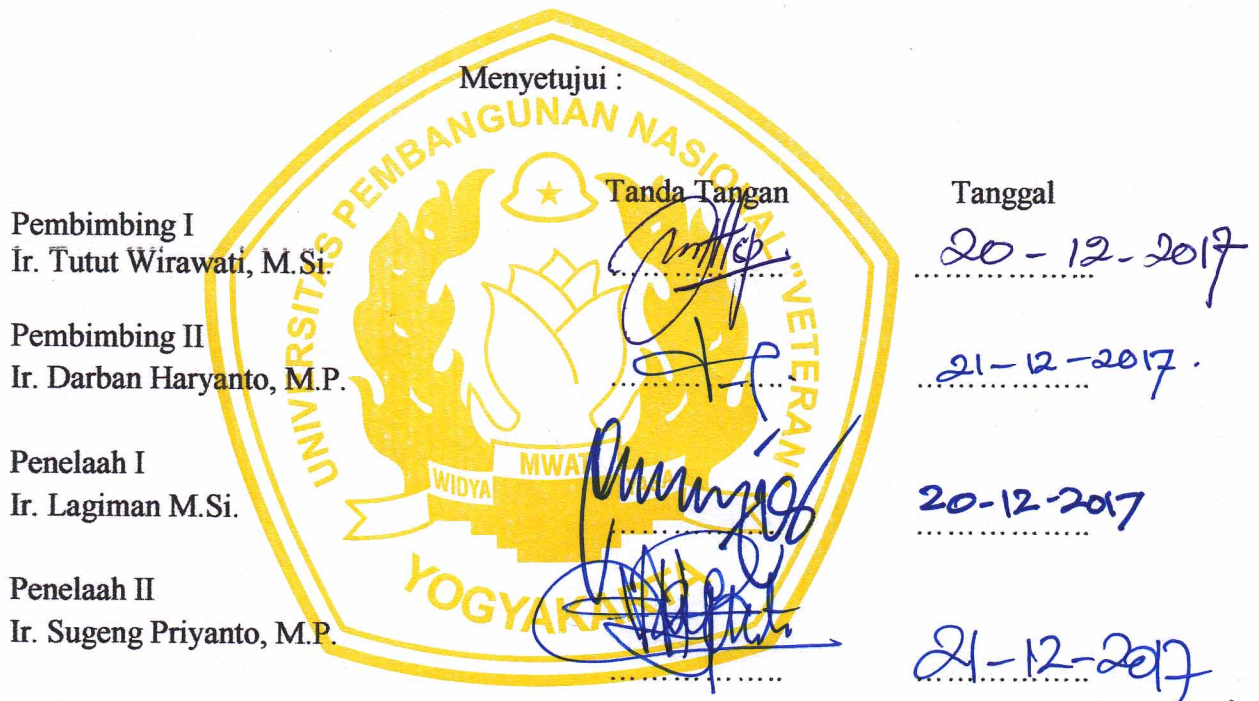 Menyetujui :
UNIVERSITAS PEMBANGUNAN NASIONAL "VETERAN"
Tanda Tangan
Tanggal
Pembimbing I
Ir. Tutut Wirawati, M.Si.
20-12-2017
Pembimbing II
Ir. Darban Haryanto, M.P.
21-12-2017.
WIDYA MWAT
Penelaah I
Ir. Lagiman M.Si.
20-12-2017
YOGYAKARTA
Penelaah II
Ir. Sugeng Priyanto, M.P.
21-12-2017